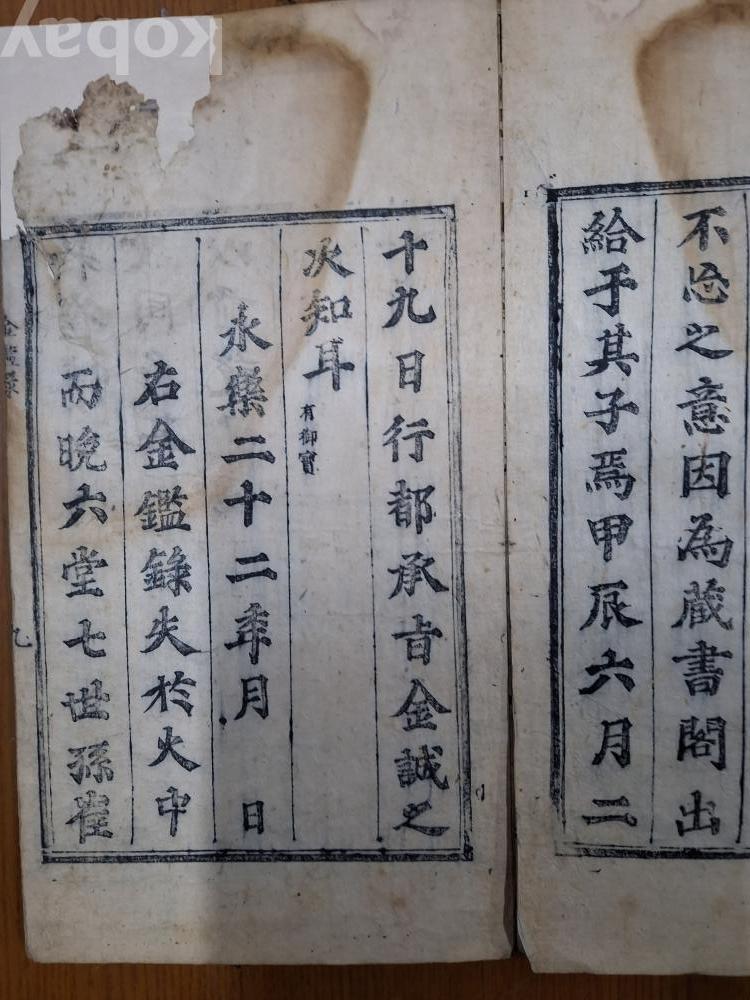 不忘之意因為蔵書閣出
給于其子焉甲辰六月二
十九日行都承旨金誠之
次知耳有御寶
永樂二十二年月 日
右金鑑錄失於火中
而晩六堂七世孫崔
kobay